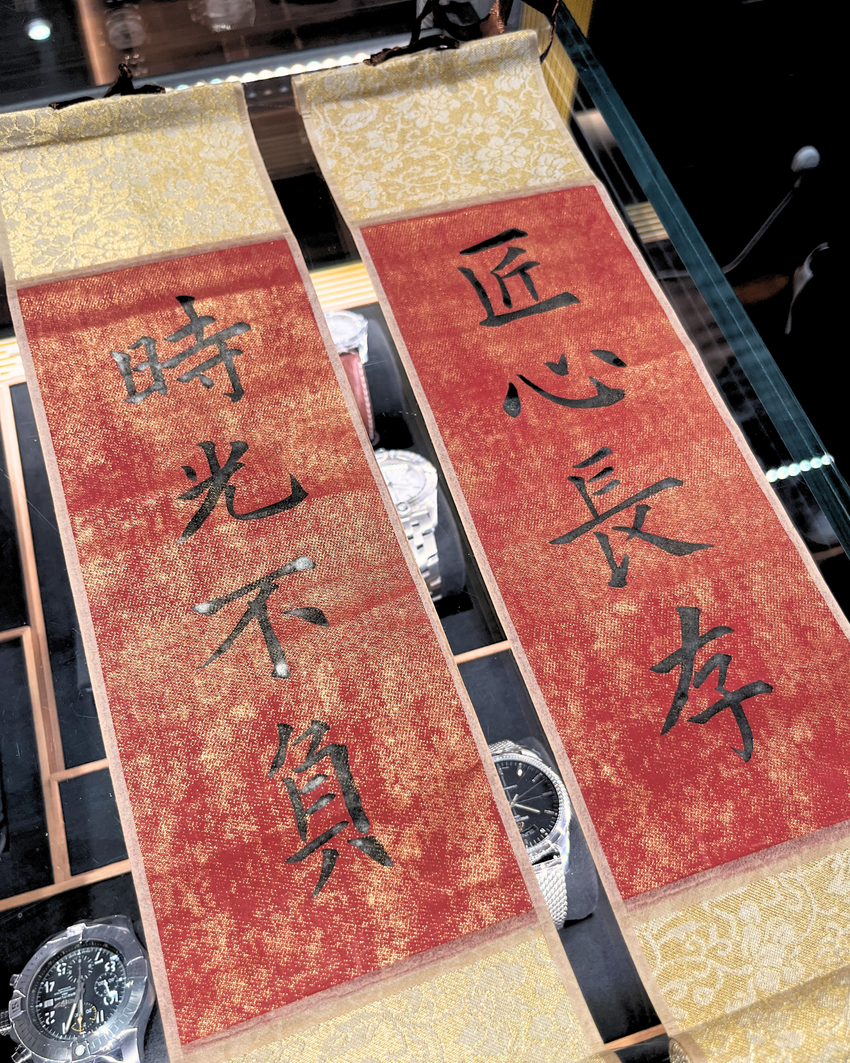 匠心長存
時光不負